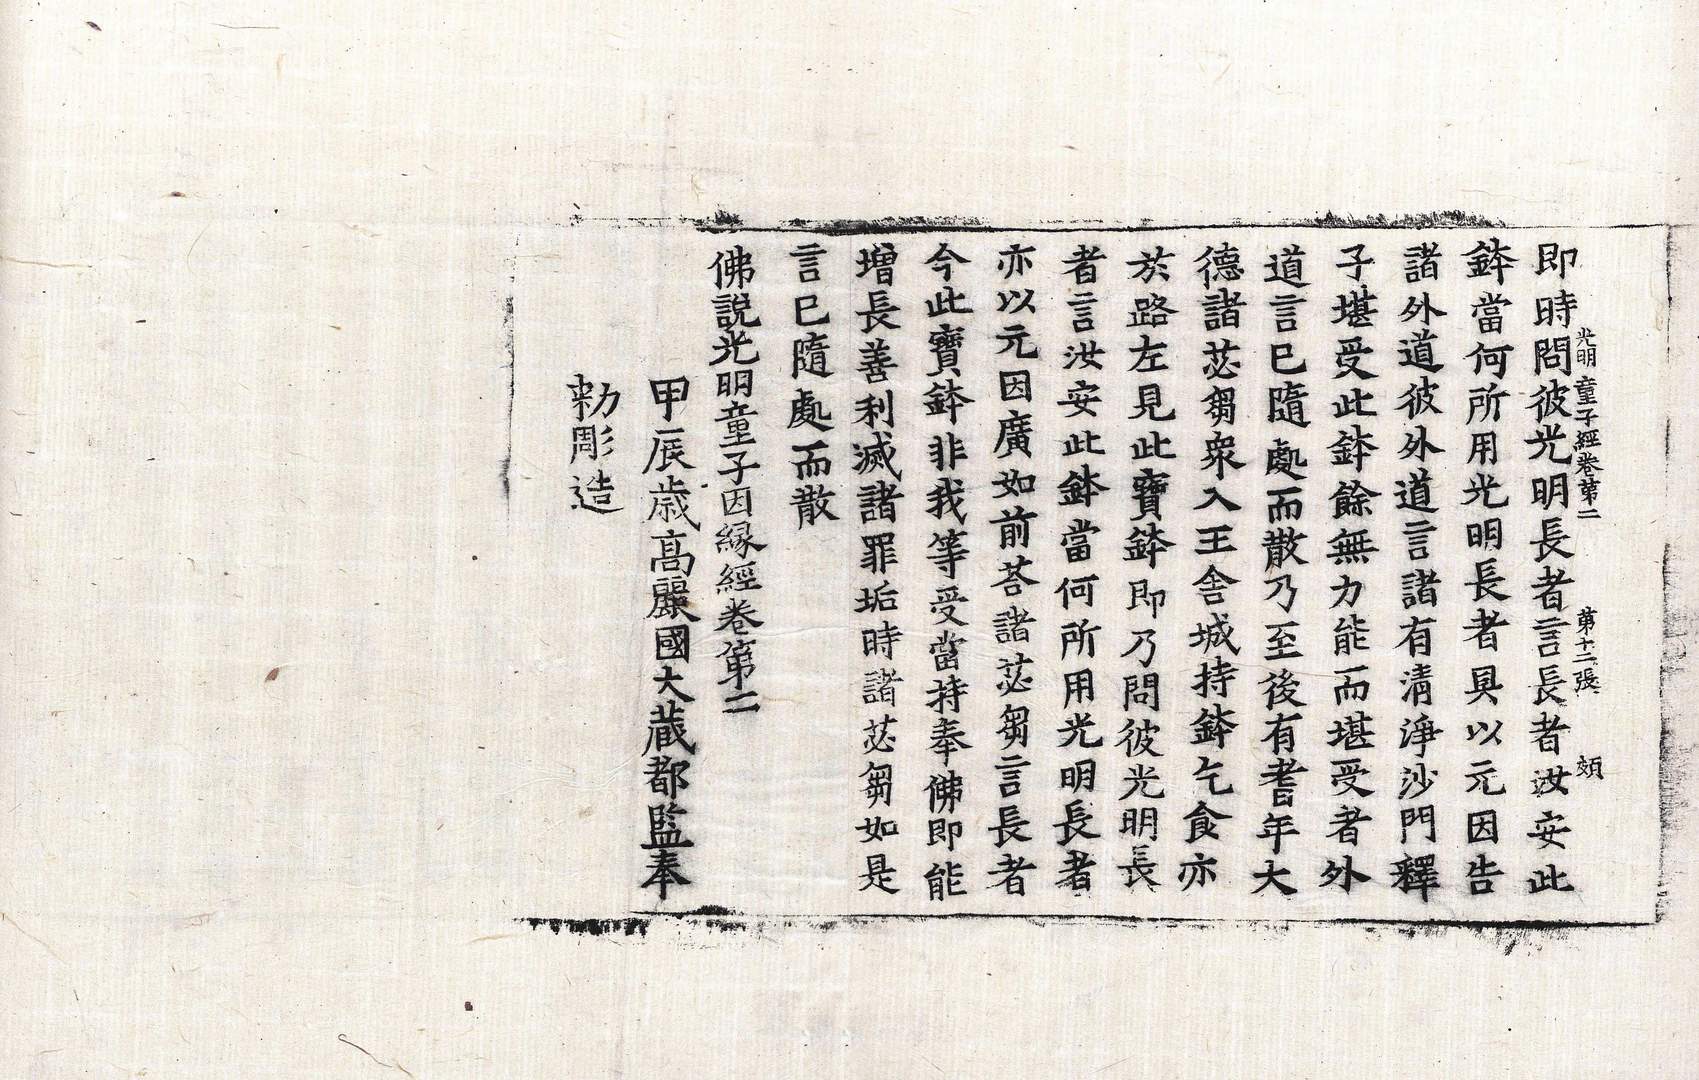 光明童子經卷第二 第十二張 頞
即時問彼光明長者言長者汝安此
鉢當何所用光明長者具以元因告
諸外道彼外道言諸有清淨沙門釋
子堪受此鉢餘無力能而堪受者外
道言已隨處而散乃至後有耆年大
德諸苾芻衆入王舍城持鉢乞食亦
於路左見此寶鉢即乃問彼光明長
者言汝安此鉢當何所用光明長者
亦以元因廣如前荅諸苾芻言長者
今此寶鉢非我等受當持奉佛即能
增長善利滅諸罪垢時諸苾芻如是
言已隨處而散
佛說光明童子因緣經卷第二
甲辰歲高麗國大藏都監奉
勑彫造